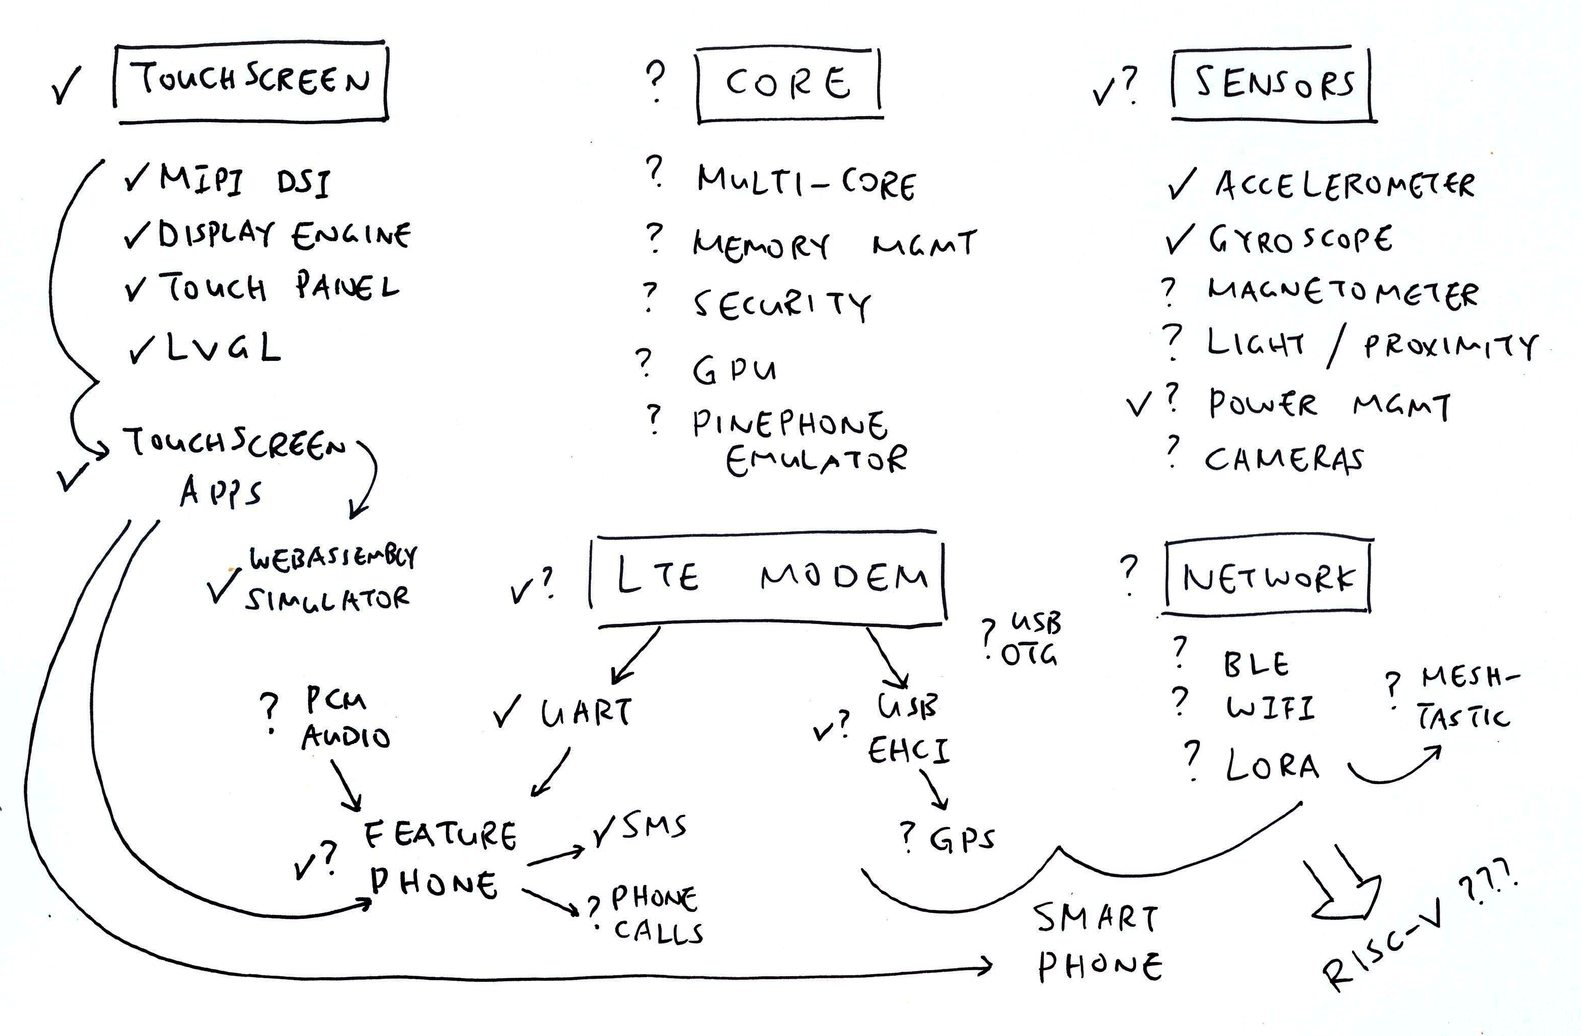 ✓ TOUCHSCREEN
✓ MIPI DSI
✓ DISPLAY ENGINE
✓ TOUCH PANEL
✓ LVGL
✓ TOUCHSCREEN
APPS
✓ WEBASSEMBLY
SIMULATOR
? CORE
? MULTI-CORE
? MEMORY MGMT
? SECURITY
? GPU
? PINEPHONE
EMULATOR
✓? SENSORS
✓ ACCELEROMETER
✓ GYROSCOPE
? MAGNETOMETER
? LIGHT / PROXIMITY
✓? POWER MGMT
? CAMERAS
✓? LTE MODEM
? USB
OTG
? PCM
AUDIO
✓ UART
✓? USB
EHCI
? GPS
✓? FEATURE
PHONE
✓ SMS
? PHONE
CALLS
? NETWORK
? BLE
? WIFI
? LORA
? MESH-
TASTIC
SMART
PHONE
RISC-V ???